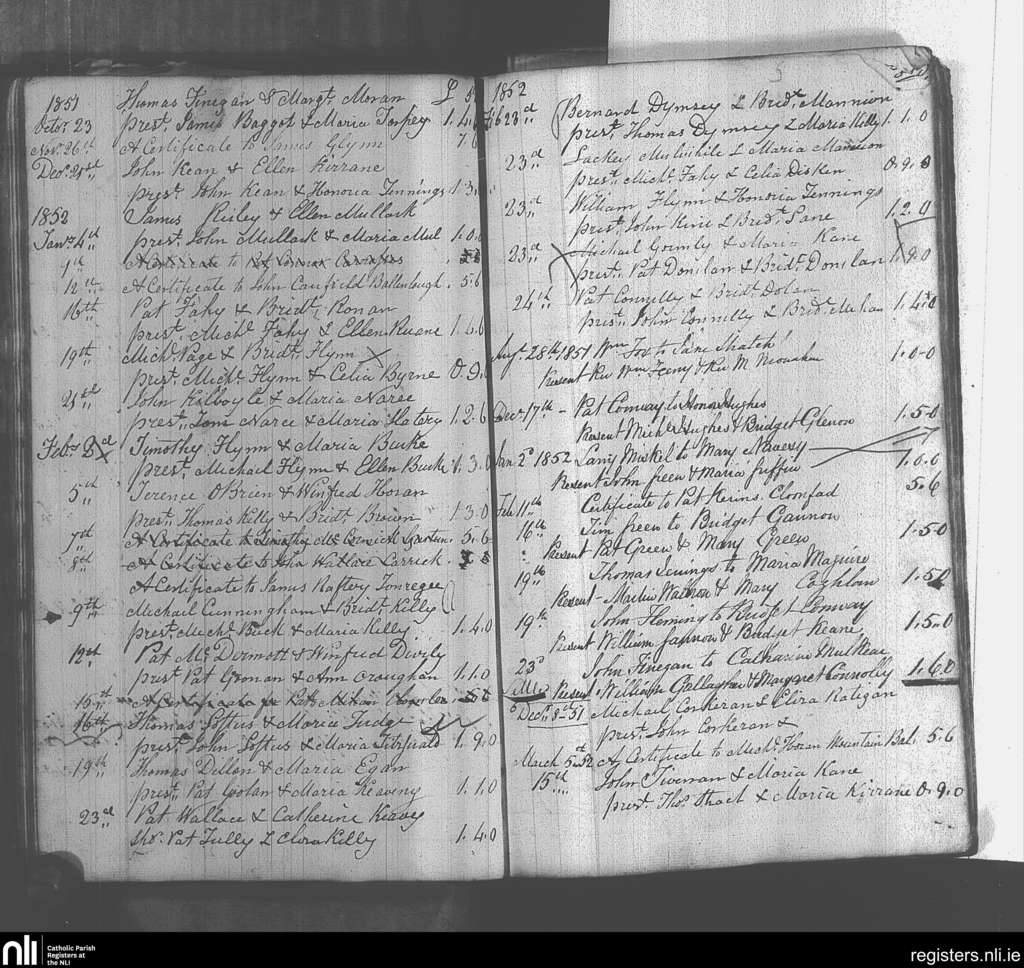 1851 Thomas Finegan & Margt. Moran £ s
Octor. 23 prest. James Baggot & Maria Torpey 1.4.
Novr. 26th A Certificate to James Glynn 7.6
Decr. 21st John Kean & Ellen Kirrane
prest. John Kean & Honoria Jennings 1.3.
1852 James Reiley & Ellen Mullark
Jany. 4th prest. John Mullark & Maria Mul 1.0.0
9th A Certificate to
12th A Certificate to John Canfield Ballenlough 5.6
16th Pat Fahy & Bridt. Ronan
prest. Michl. Fahy & Ellen Ruane 1.6.0
19th Michl. Page & Bridt. Flynn
prest. Michl. Flynn & Celia Byrne 0.9.
21st John Kilboyle & Maria Naree
prest. Tom Naree & Maria Slatery 1.2.6
Febry. 2d Timothy Flynn & Maria Burke
prest. Michael Flynn & Ellen Burke 1.3.0
5th Terence OBrien & Winfred Horan
prest. Thomas Kelly & Bridt. Brown 1.3.0
7th A Certificate to Timothy 5.6
8th A Certificate to John Wallace Carrick
A Certificate to James Raftery Tonregee
9th Michael Cunningham & Bridt. Kelly
prest. Michl. Buck & Maria Kelly 1.4.0
12th Pat McDermott & Winfred Devily
prest. Pat Gronan & Ann Craughan 1.1.0
15th A Certificate for Patt
16th Thomas Loftus & Maria Judge
prest. John Loftus & Maria Fitzjrald 1.9.0
19th Thomas Dellon & Maria Egan
prest. Pat Goolan & Maria Keaveny 1.1.0
23rd Pat Wallace & Catherine Keavey
Pat Tully & Clora Killy 1.4.0
1852
Feb 23rd Bernard Dymsey & Bridt. Mannion
prest. Thomas Dymsey & Maria Killy 1.1.0
23rd Lackey Mulvihile & Maria Mannion
prest. Michl. Fahy & Celia Disken 0.9.0
23rd William Flynn & Honoria Jennings
prest. John Kine & Bridt. Lane 1.2.0
23rd Michael Gormly & Maria Kane
prest. Pat Donslan & Bridt. Donslan 1.9.0
24th Pat Connelly & Bridt. Dolan
prest. John Connelly & Bridt. Mehan 1.4.0
Augt. 28th 1851 Wm Fox to Jane Thatch
Present Rev Wm Feeny & Rev M Monahu 1.0-0
Decr 17th - Pat Conway to Honor Hughes
Present Michl Hughes & Bridget Glenon 1.5.0
Jan 2d 1852 Larry Miskel to Mary
Present John green & Maria griffin 1.0.0
Feb 11th Certificate to Pat Kerins. Cloonfad 5.6
16th Tim green to Bridget Gannon
Present Pat Green & Mary Green 1.50
19th Thomas to Maria Maguire
Present - Martin Waldron & Mary Coghlan 1.50
19th John Fleming to Bridget Conway
Present William gannon & Bridget Keane 1.5.0
23d John Finegan to Catharine Mulkeen
Present William Gallagher & Margaret Connolly 1.6.0
Decr. 8th 51 Michael Corkeran & Eliza Ratigan
prest. John Corkeran &
March 5th 52 A Certificate to Michl. Horan Mountain Bal. 5.6
15th John Tiernan & Maria Kane
prest. Thos. & Maria Kirrane 0.9.0
nli
Catholic Parish
Registers at
the NLI
registers.nli.ie